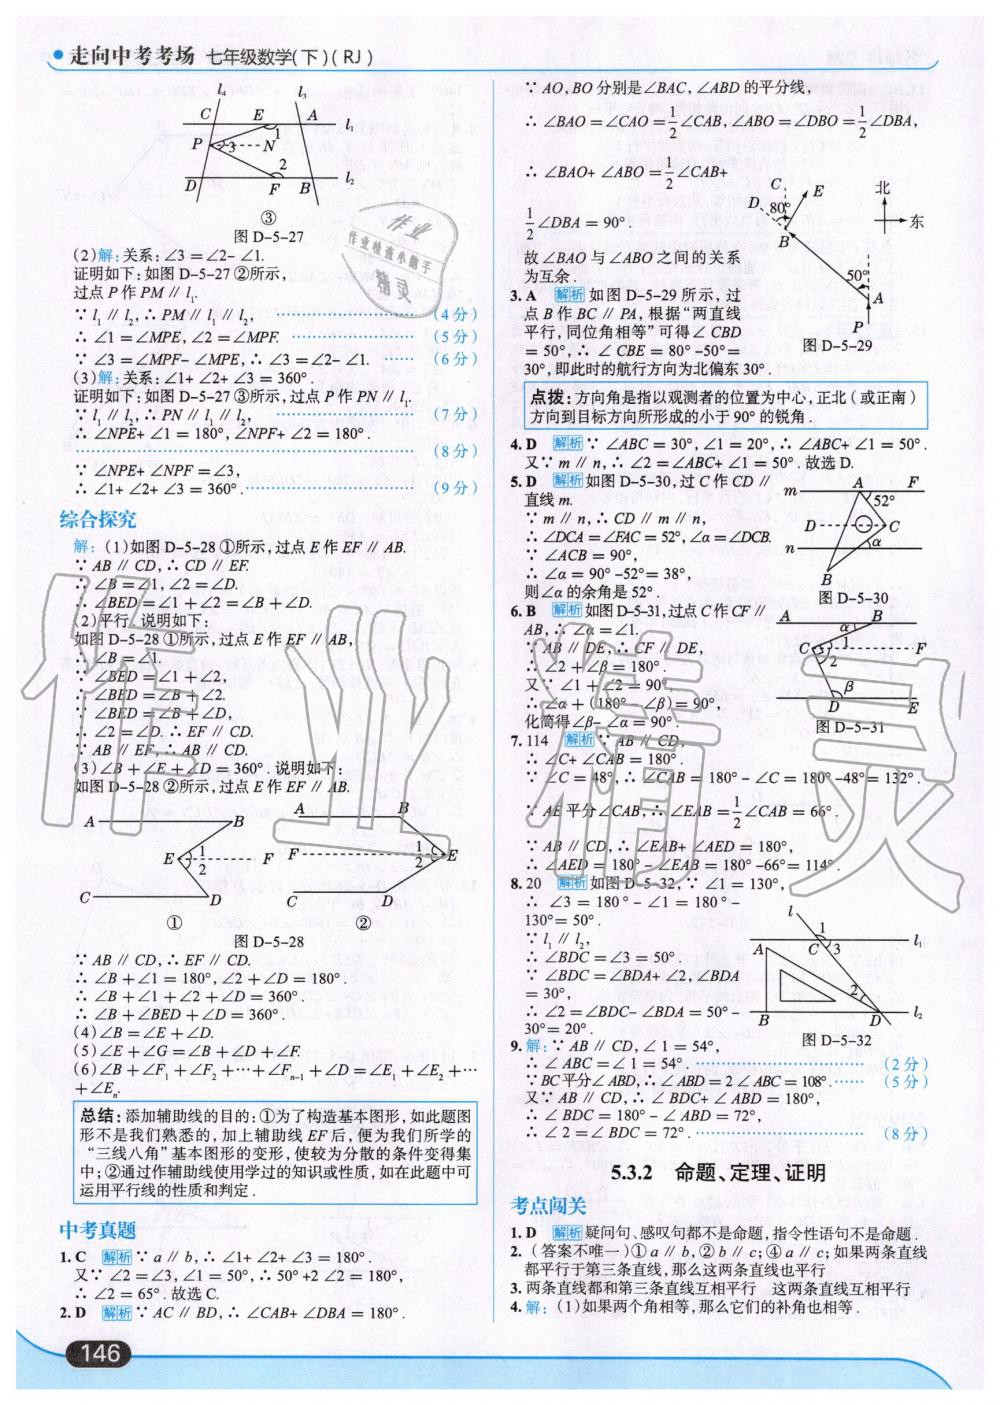 走向中考考场 七年级数学(下)(RJ)
l₄ l₃
C E A l₁
P 3 1 N
2
D F B l₂
③
图 D-5-27
(2)解:关系:∠3 =∠2- ∠1.
证明如下:如图 D-5-27 ②所示,
过点 P 作 PM∥l₁.
∵ l₁∥l₂,∴ PM∥l₁∥l₂, ……(4分)
∴ ∠1 =∠MPE,∠2 =∠MPF. ……(5分)
∵ ∠3 =∠MPF- ∠MPE,∴ ∠3 =∠2- ∠1. ……(6分)
(3)解:关系:∠1+ ∠2+ ∠3 = 360°.
证明如下:如图 D-5-27 ③所示,过点 P 作 PN∥l₁.
∵ l₁∥l₂,∴ PN∥l₁∥l₂, ……(7分)
∴ ∠NPE+ ∠1 = 180°,∠NPF+ ∠2 = 180°.
……(8分)
∵ ∠NPE+ ∠NPF =∠3,
∴ ∠1+ ∠2+ ∠3 = 360°. ……(9分)
综合探究
解:(1)如图 D-5-28 ①所示,过点 E 作 EF∥AB.
∵ AB∥CD,∴ CD∥EF.
∴ ∠B =∠1,∠2 =∠D.
∴ ∠BED =∠1 +∠2 =∠B +∠D.
(2)平行. 说明如下:
如图 D-5-28 ①所示,过点 E 作 EF∥AB,
∴ ∠B =∠1.
∵ ∠BED =∠1 +∠2,
∴ ∠BED =∠B +∠2.
∵ ∠BED =∠B +∠D,
∴ ∠2 =∠D.∴ EF∥CD.
∵ AB∥EF,∴ AB∥CD.
(3)∠B +∠E +∠D = 360°. 说明如下:
如图 D-5-28 ②所示,过点 E 作 EF∥AB.
A B A B
E 1 2 F F 1 2 E
C D C D
① ②
图 D-5-28
∵ AB∥CD,∴ EF∥CD.
∴ ∠B +∠1 = 180°,∠2 +∠D = 180°.
∴ ∠B +∠1 +∠2 +∠D = 360°.
∴ ∠B +∠BED +∠D = 360°.
(4)∠B =∠E +∠D.
(5)∠E +∠G =∠B +∠D +∠F.
(6)∠B +∠F₁ +∠F₂ +…+∠Fₙ₋₁ +∠D =∠E₁ +∠E₂ +…
+∠Eₙ.
总结:添加辅助线的目的:①为了构造基本图形,如此题图
形不是我们熟悉的,加上辅助线 EF 后,便为我们所学的
“三线八角”基本图形的变形,使较为分散的条件变得集
中;②通过作辅助线使用学过的知识或性质,如在此题中可
运用平行线的性质和判定.
中考真题
1. C 解析 ∵ a∥b,∴ ∠1+ ∠2+ ∠3 = 180°.
又∵ ∠2 =∠3,∠1 = 50°,∴ 50° +2 ∠2 = 180°,
∴ ∠2 = 65°. 故选 C.
2. D 解析 ∵ AC∥BD,∴ ∠CAB+ ∠DBA = 180°.
∵ AO,BO 分别是∠BAC,∠ABD 的平分线,
∴ ∠BAO =∠CAO =1/2∠CAB,∠ABO =∠DBO =1/2∠DBA,
∴ ∠BAO+ ∠ABO =1/2∠CAB+
1/2∠DBA = 90°.
故∠BAO 与∠ABO 之间的关系
为互余.
3. A 解析 如图 D-5-29 所示,过
点 B 作 BC∥PA,根据“两直线
平行,同位角相等”可得∠CBD
= 50°,∴ ∠CBE = 80° -50°=
30°,即此时的航行方向为北偏东 30°.
C E 北
D 80° 东
B
50°
A
P
图 D-5-29
点拨:方向角是指以观测者的位置为中心,正北(或正南)
方向到目标方向所形成的小于 90°的锐角.
4. D 解析 ∵ ∠ABC = 30°,∠1 = 20°,∴ ∠ABC+ ∠1 = 50°.
又∵ m∥n,∴ ∠2 =∠ABC+ ∠1 = 50°. 故选 D.
5. D 解析 如图 D-5-30,过 C 作 CD∥
直线 m.
∵ m∥n,∴ CD∥m∥n,
∴ ∠DCA =∠FAC = 52°,∠α =∠DCB.
∵ ∠ACB = 90°,
∴ ∠α = 90° -52°= 38°,
则∠α 的余角是 52°.
m A F
52°
D C
n α
B
图 D-5-30
6. B 解析 如图 D-5-31,过点 C 作 CF∥
AB,∴ ∠α =∠1.
∵ AB∥DE,∴ CF∥DE,
∴ ∠2 +∠β = 180°.
又∵ ∠1 +∠2 = 90°,
∴ ∠α + (180° - ∠β) = 90°,
化简得∠β- ∠α = 90°.
A B
α
C 1 2 F
β
D E
图 D-5-31
7. 114 解析 ∵ AB∥CD,
∴ ∠C+ ∠CAB = 180°.
∵ ∠C = 48°,∴ ∠CAB = 180° - ∠C = 180° -48°= 132°.
∵ AE 平分∠CAB,∴ ∠EAB =1/2∠CAB = 66°.
∵ AB∥CD,∴ ∠EAB+ ∠AED = 180°,
∴ ∠AED = 180° - ∠EAB = 180° -66°= 114°.
8. 20 解析 如图 D-5-32,∵ ∠1 = 130°,
∴ ∠3 = 180° - ∠1 = 180° -
130°= 50°.
∵ l₁∥l₂,
∴ ∠BDC =∠3 = 50°.
∵ ∠BDC =∠BDA+ ∠2,∠BDA
= 30°,
∴ ∠2 =∠BDC- ∠BDA = 50° -
30°= 20°.
l
1
A C 3 l₁
2
B D l₂
图 D-5-32
9. 解:∵ AB∥CD,∠1 = 54°,
∴ ∠ABC =∠1 = 54°. ……(2分)
∵ BC平分∠ABD,∴ ∠ABD = 2 ∠ABC = 108°. ……(5分)
又∵ AB∥CD,∴ ∠BDC+ ∠ABD = 180°,
∴ ∠BDC = 180° - ∠ABD = 72°,
∴ ∠2 =∠BDC = 72°. ……(8分)
5.3.2 命题、定理、证明
考点闯关
1. D 解析 疑问句、感叹句都不是命题,指令性语句不是命题.
2. (答案不唯一)①a∥b,②b∥c;④a∥c;如果两条直线
都平行于第三条直线,那么这两条直线也平行
3. 两条直线都和第三条直线互相平行 这两条直线互相平行
4. 解:(1)如果两个角相等,那么它们的补角也相等.
146
作业
作业检查小助手
精灵
作业精灵